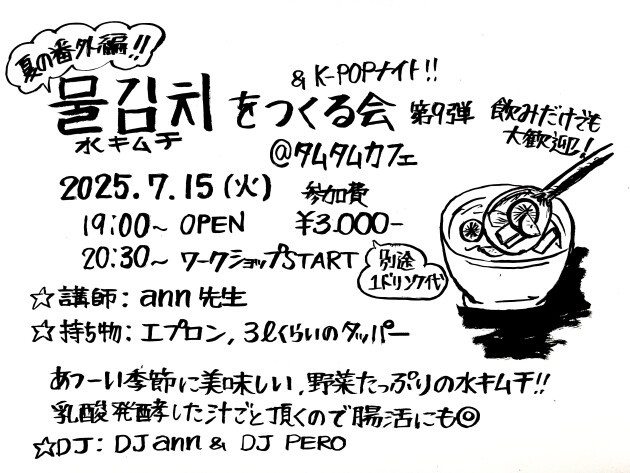 夏の番外編!!
& K-POPナイト!!
물김치をつくる会 第9弾
水キムチ
飲みだけでも
大歓迎!
@タムタムカフェ
2025.7.15(火)
19:00~ OPEN
20:30~ ワークショップSTART
参加費
¥3.000-
別途
1ドリンク代
☆講師: ann先生
☆持ち物: エプロン, 3ℓくらいのタッパー
あつーい季節に美味しい,野菜たっぷりの水キムチ!!
乳酸発酵した汁ごと頂くので腸活にも◎
☆DJ: DJ ann & DJ PERO